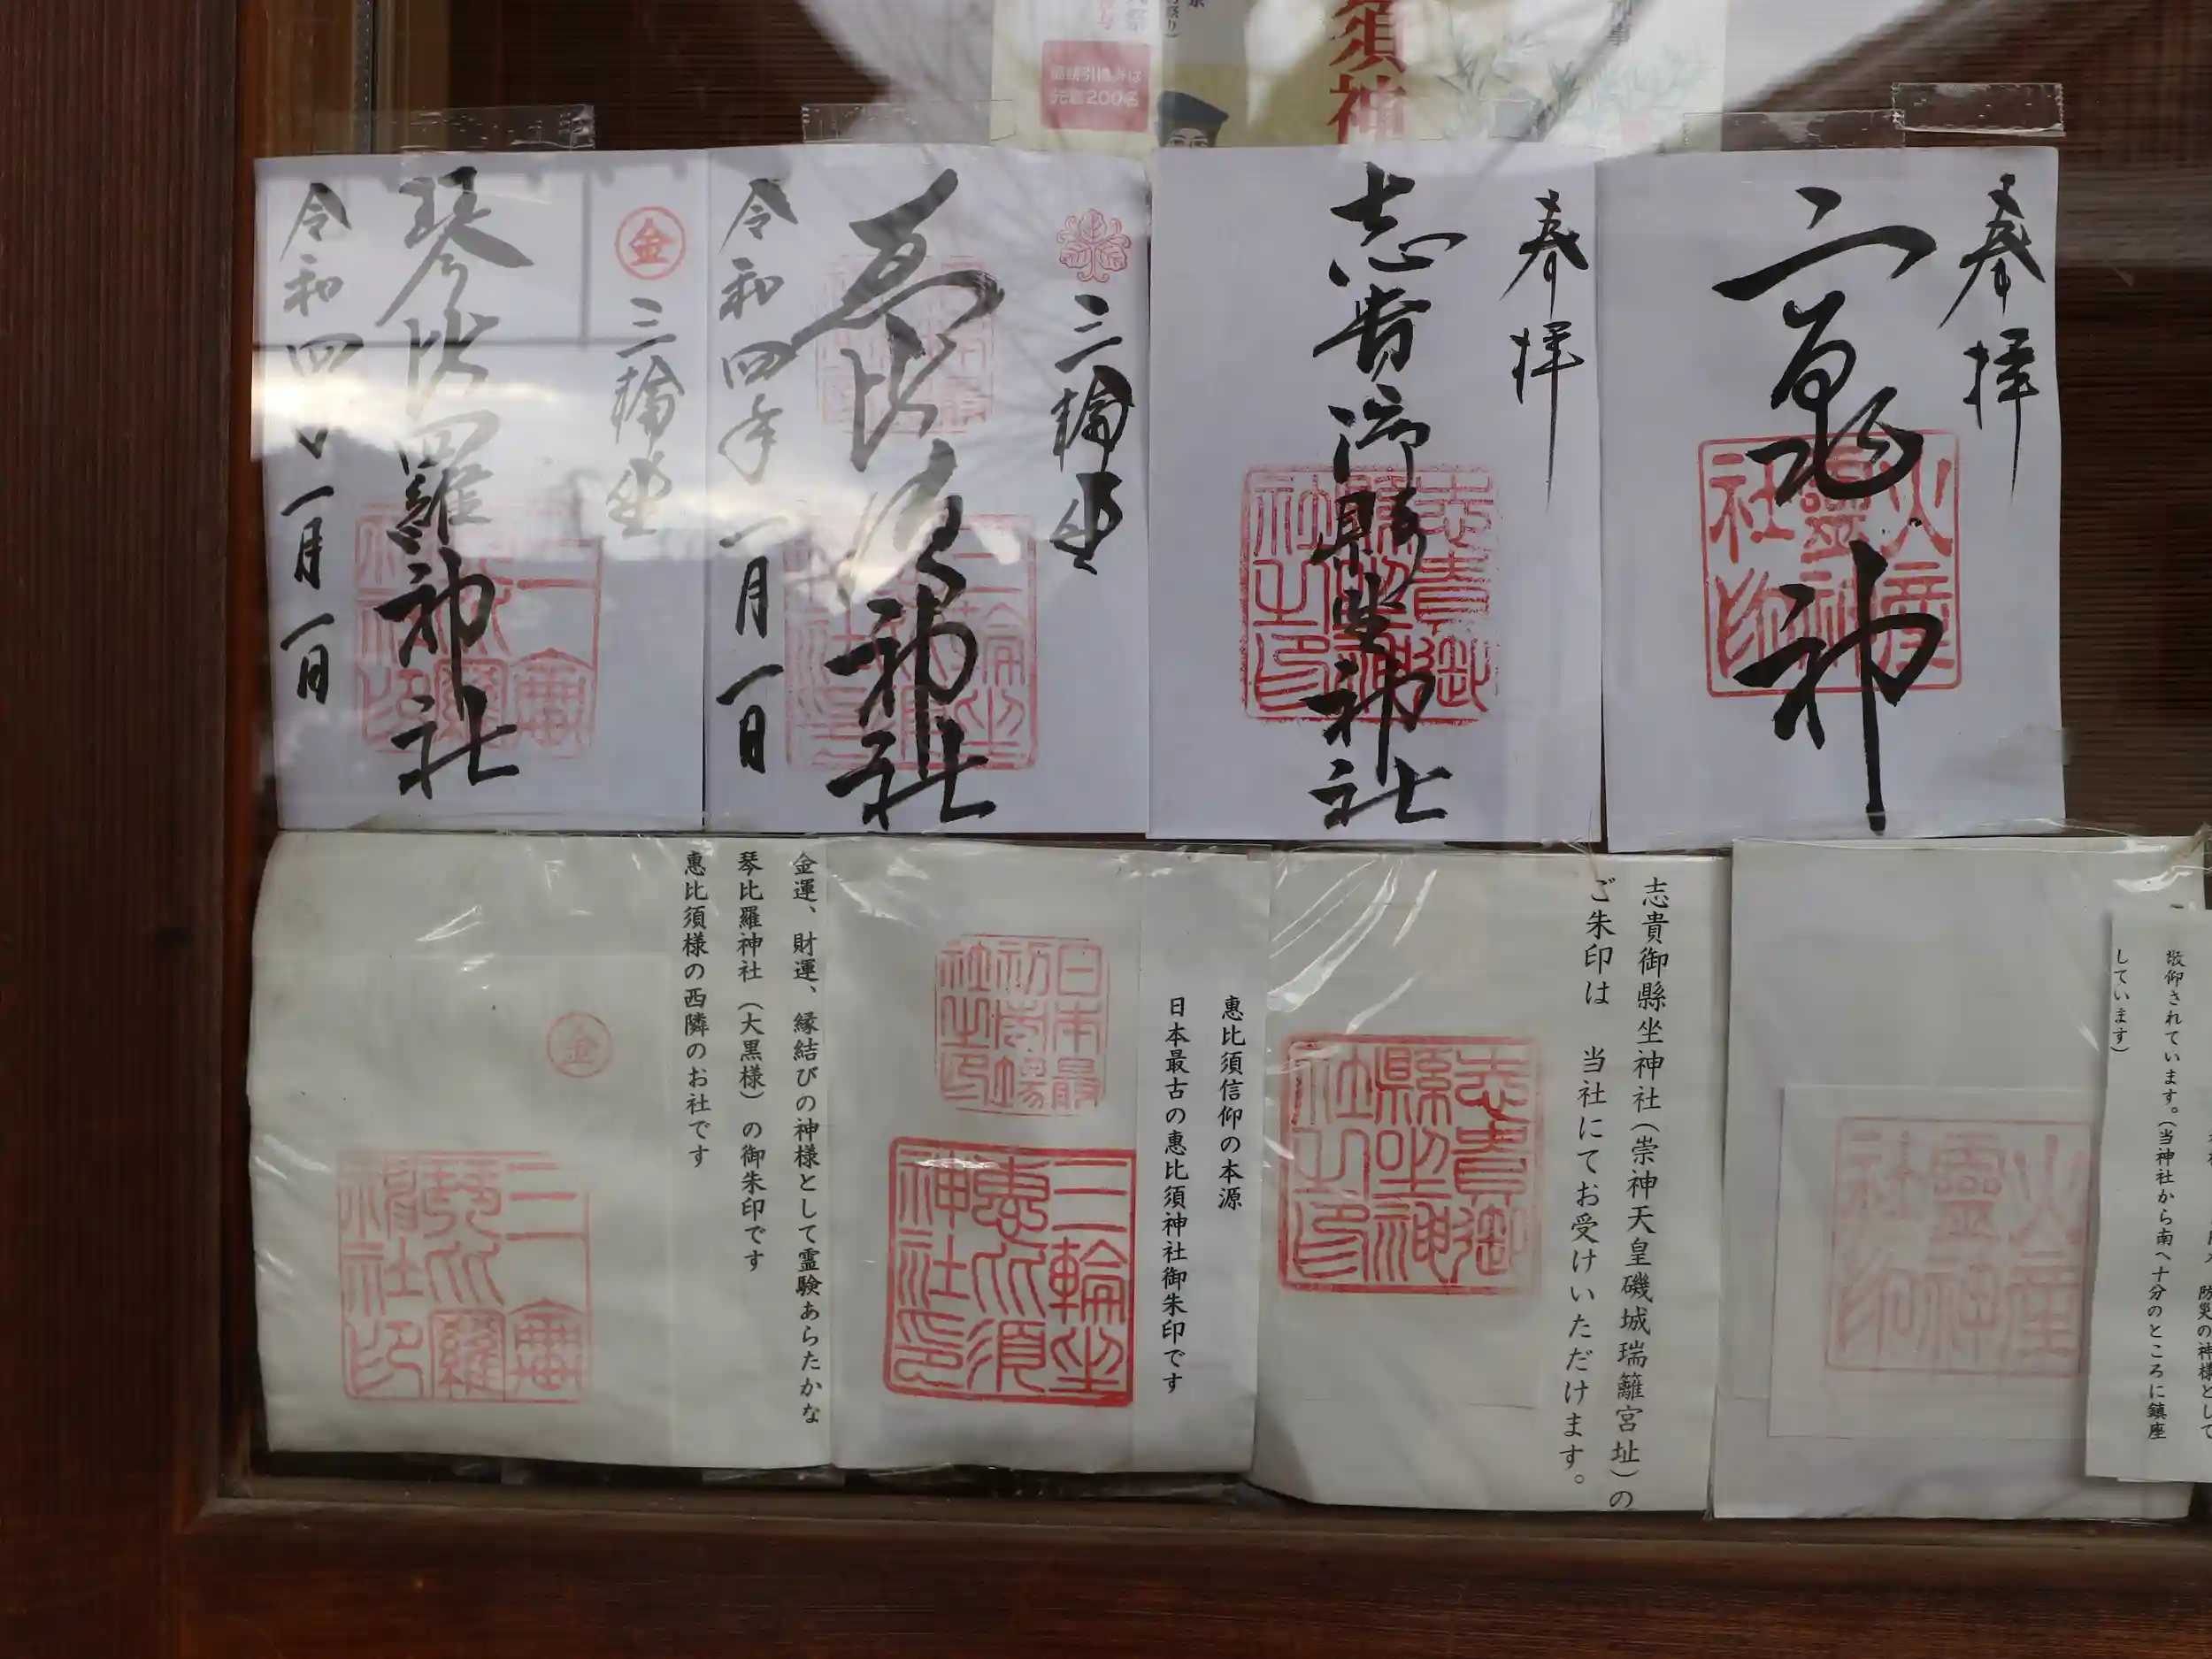 先着200名
須神
奉拝
三宝荒神
火産
霊神
社印
奉拝
志貴御縣坐神社
志貴御
縣坐神
社之印
三輪坐
恵比須神社
令和四年一月一日
三輪坐
恵比須
神社印
金
三輪坐
琴比羅神社
令和四年一月一日
三輪
琴比羅
神社印
防災の神様として
敬仰されています。(当神社から南へ十分のところに鎮座
しています)
火産
霊神
社印
志貴御縣坐神社(崇神天皇磯城瑞籬宮址)の
ご朱印は 当社にてお受けいただけます。
志貴御
縣坐神
社之印
惠比須信仰の本源
日本最古の惠比須神社御朱印です
日本最
初市場
社之印
三輪坐
恵比須
神社印
金運、財運、縁結びの神様として霊験あらたかな
琴比羅神社(大黒様)の御朱印です
惠比須様の西隣のお社です
金
三輪
琴比羅
神社印